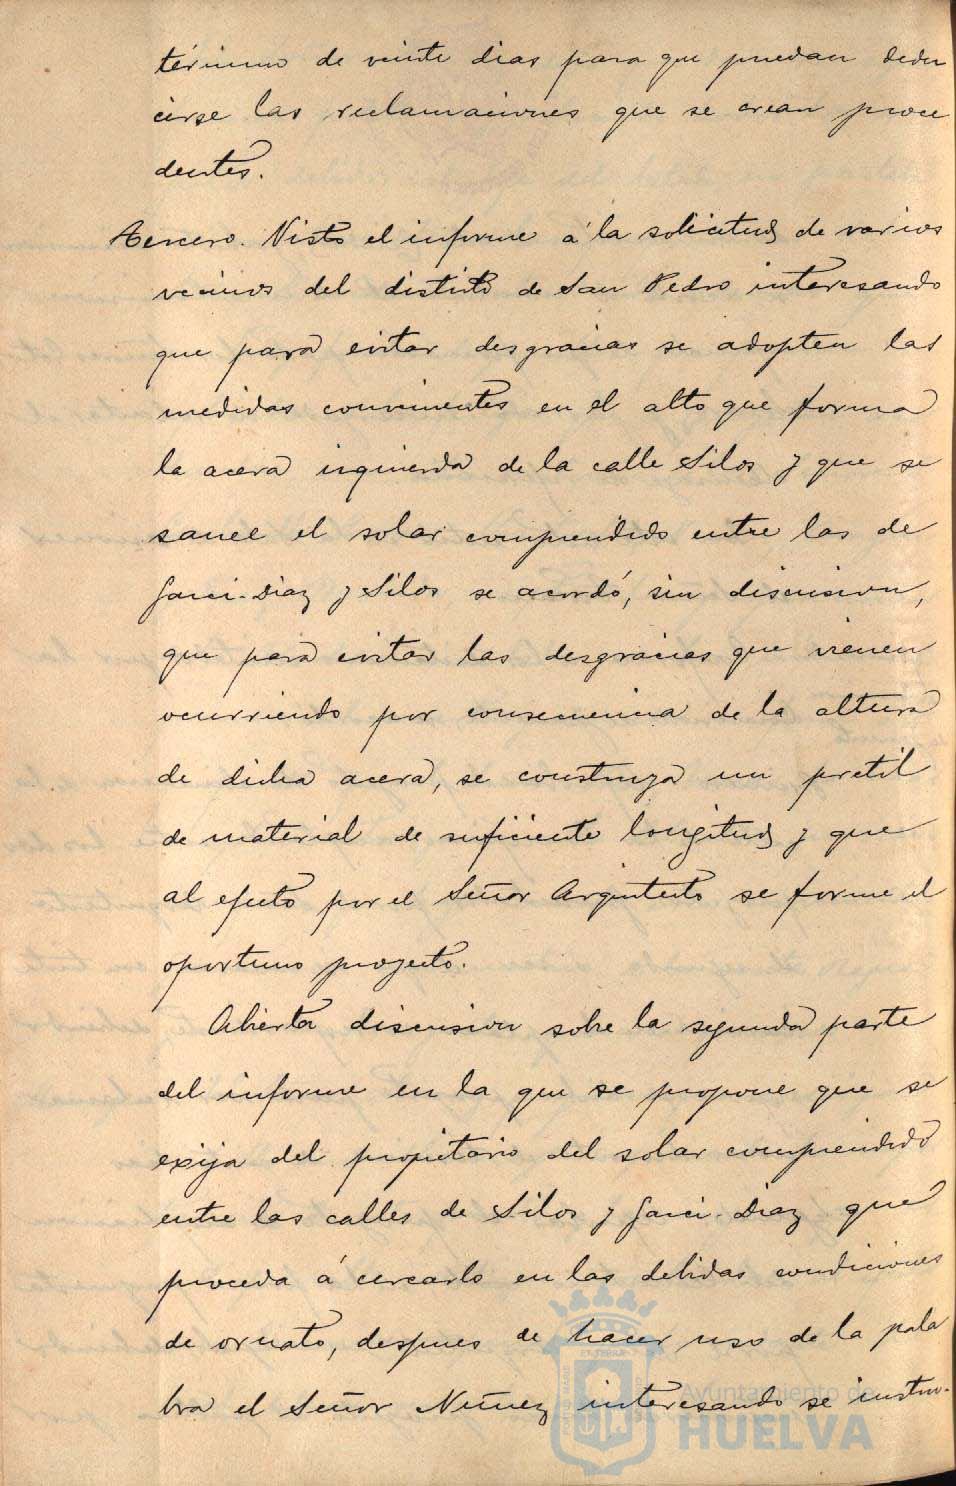 término de veinte dias para que puedan dedu
cirse las reclamaciones que se crean proce
dentes.
Tercero. Visto el informe á la solicitud de varios
vecinos del distrito de San Pedro interesando
que para evitar desgracias se adopten las
medidas convenientes en el alto que forma
la acera izquierda de la calle Silos y que se
sanee el solar comprendido entre las de
Garci-Diaz y Silos se acordó, sin discusion,
que para evitar las desgracias que vienen
ocurriendo por consecuencia de la altura
de dicha acera, se construya un pretil
de material de suficiente longitud y que
al efecto por el Señor Arquitecto se forme el
oportuno proyecto.
Abierta discusion sobre la segunda parte
del informe en la que se propone que se
exija del propietario del solar comprendido
entre las calles de Silos y Garci-Diaz que
proceda á cercarlo en las debidas condiciones
de ornato, despues de hacer uso de la pala
bra el Señor Nuñez interesando se instru-
Ayuntamiento de
HUELVA